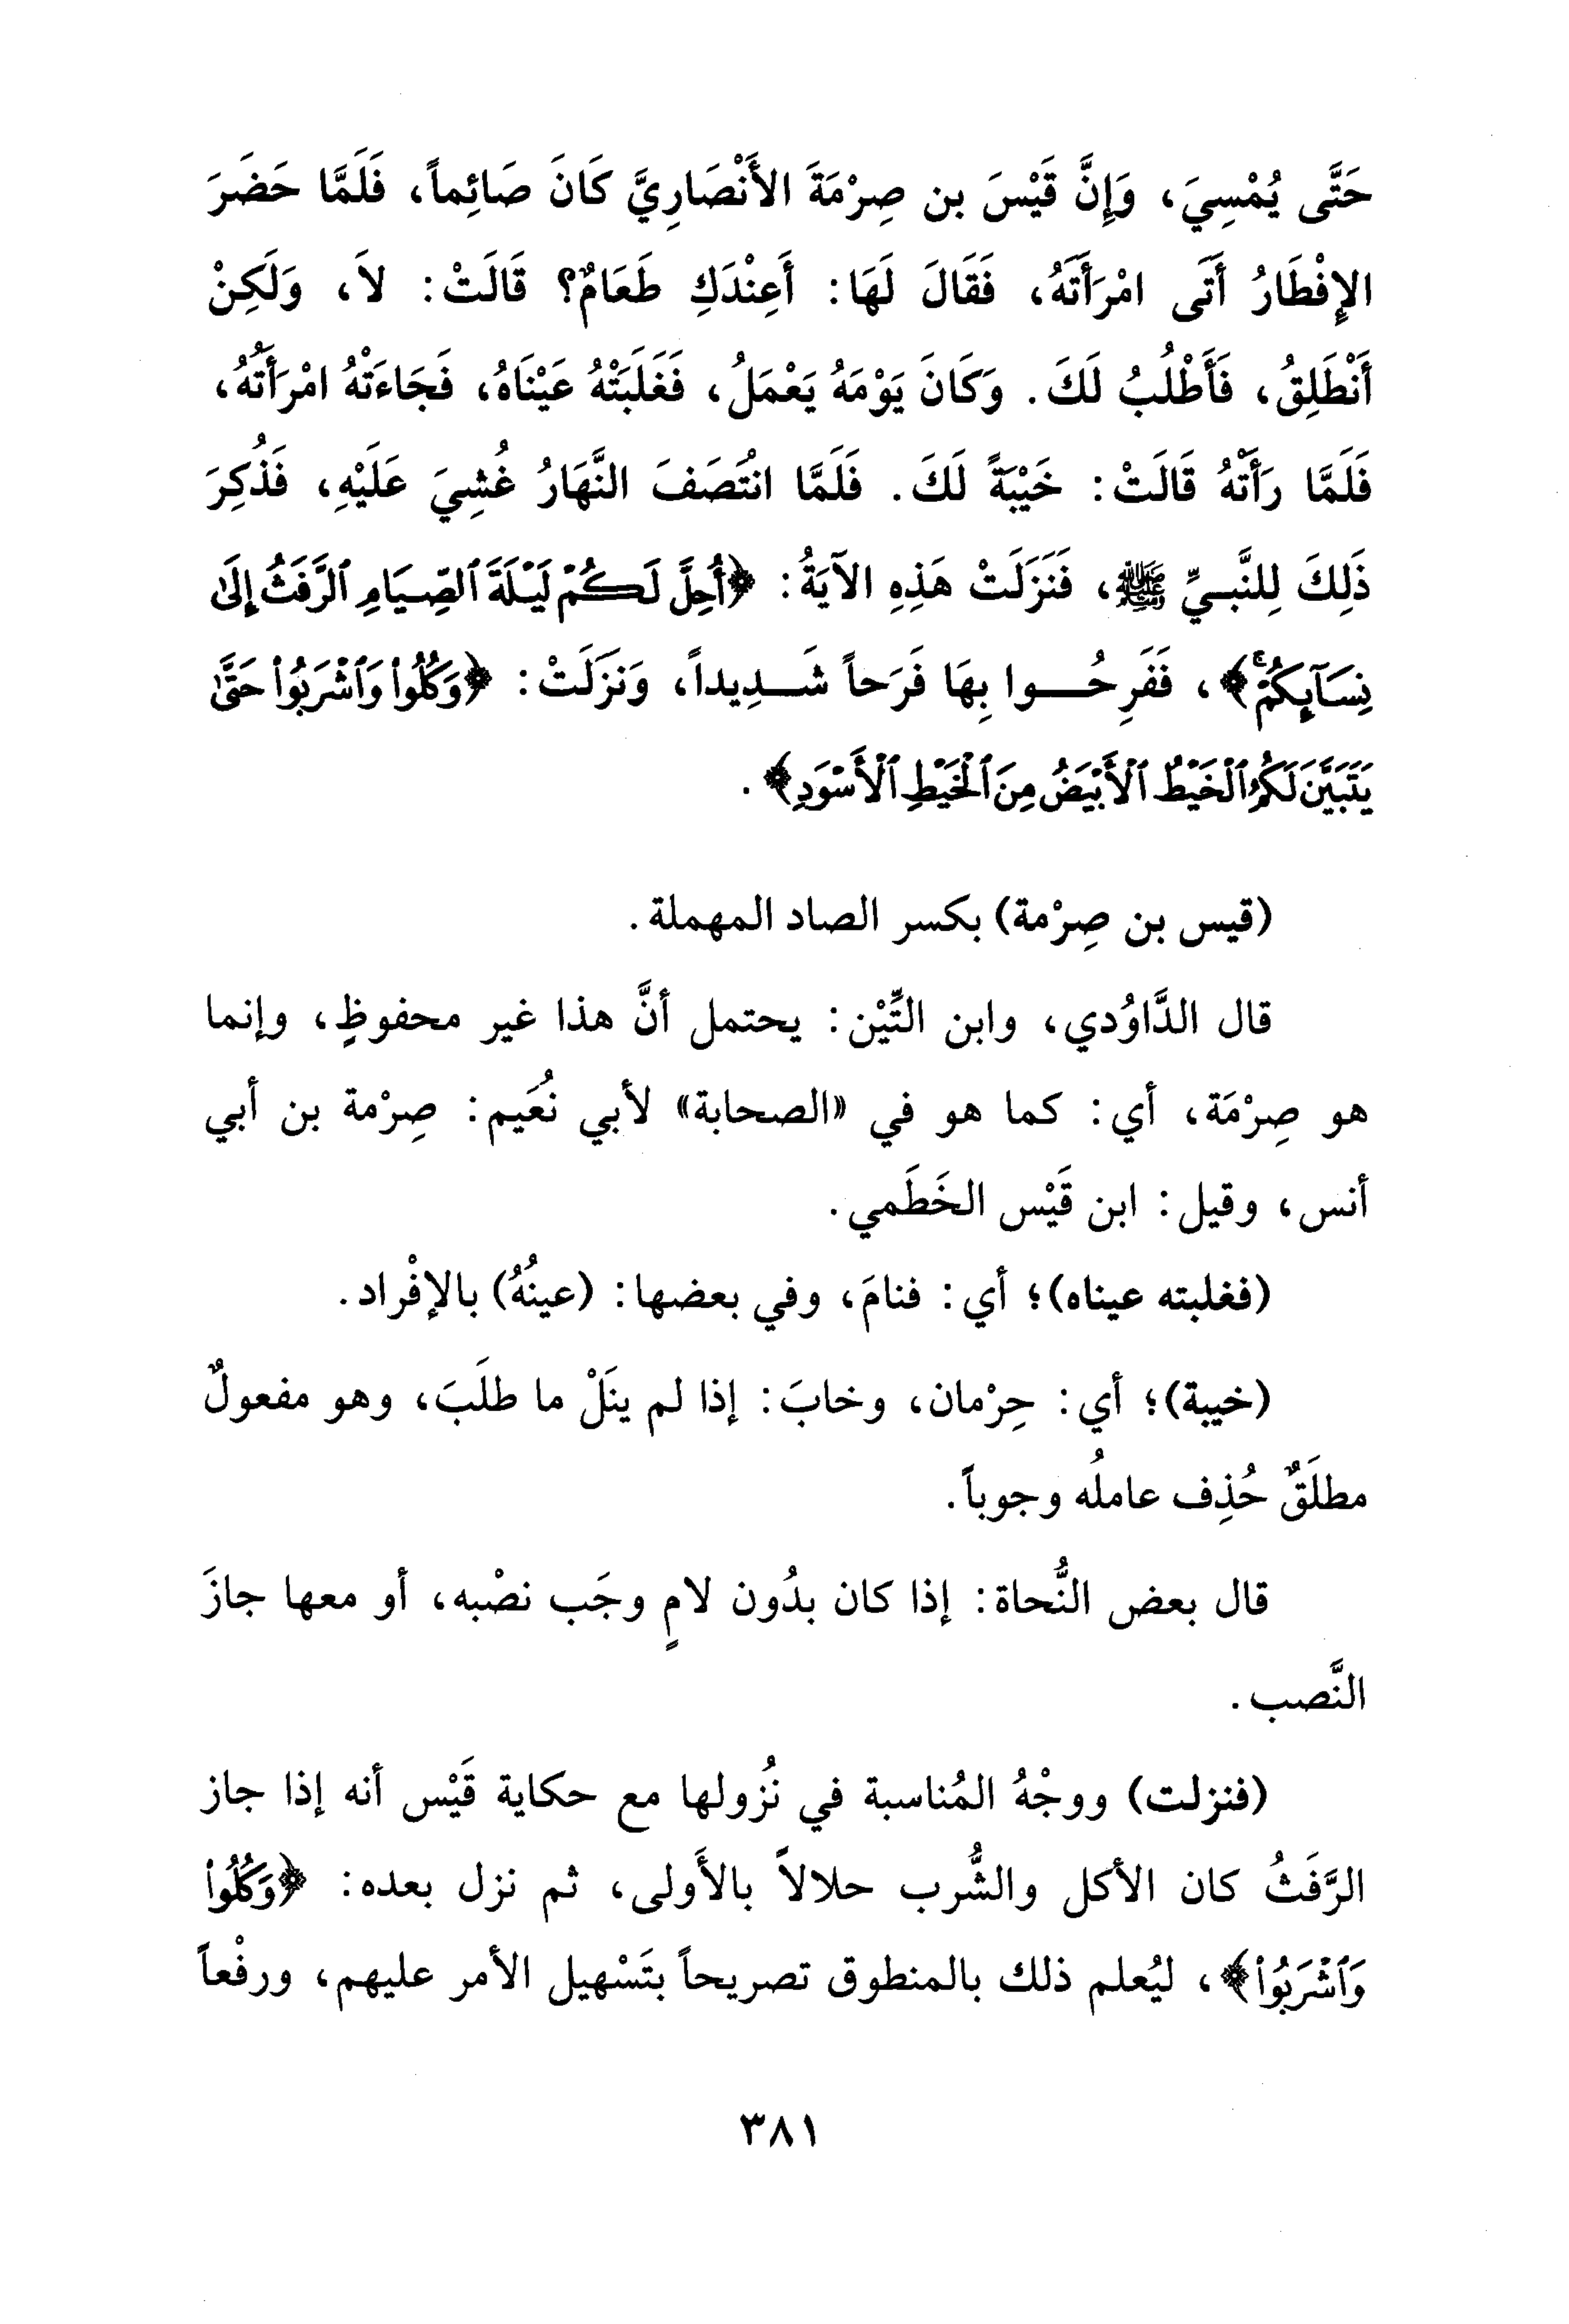 حَتَّى يُمْسِيَ، وَإِنَّ قَيْسَ بن صِرْمَةَ الأَنْصَارِيَّ كَانَ صَائِماً، فَلَمَّا حَضَرَ
الإِفْطَارُ أَتَى امْرَأَتَهُ، فَقَالَ لَهَا: أَعِنْدَكِ طَعَامٌ؟ قَالَتْ: لاَ، وَلَكِنْ
أَنْطَلِقُ، فَأَطْلُبُ لَكَ. وَكَانَ يَوْمَهُ يَعْمَلُ، فَغَلَبَتْهُ عَيْنَاهُ، فَجَاءَتْهُ امْرَأَتُهُ،
فَلَمَّا رَأَتْهُ قَالَتْ: خَيْبَةً لَكَ. فَلَمَّا انْتَصَفَ النَّهَارُ غُشِيَ عَلَيْهِ، فَذُكِرَ
ذَلِكَ لِلنَّبِيِّ ﷺ، فَنَزَلَتْ هَذِهِ الآيَةُ: ﴿أُحِلَّ لَكُمْ لَيْلَةَ ٱلصِّيَامِ ٱلرَّفَثُ إِلَىٰ
نِسَآئِكُمْ ۚ﴾، فَفَرِحُوا بِهَا فَرَحاً شَدِيداً، وَنَزَلَتْ: ﴿وَكُلُوا۟ وَٱشْرَبُوا۟ حَتَّىٰ
يَتَبَيَّنَ لَكُمُ ٱلْخَيْطُ ٱلْأَبْيَضُ مِنَ ٱلْخَيْطِ ٱلْأَسْوَدِ﴾.
(قيس بن صِرْمة) بكسر الصاد المهملة.
قال الدَّاوُدي، وابن التِّيْن: يحتمل أنَّ هذا غير محفوظٍ، وإنما
هو صِرْمَة، أي: كما هو في «الصحابة» لأبي نُعَيم: صِرْمة بن أبي
أنس، وقيل: ابن قَيْس الخَطَمي.
(فغلبته عيناه)؛ أي: فنامَ، وفي بعضها: (عينُهُ) بالإفْراد.
(خيبة)؛ أي: حِرْمان، وخابَ: إذا لم ينَلْ ما طلَبَ، وهو مفعولٌ
مطلَقٌ حُذِف عاملُه وجوباً.
قال بعض النُّحاة: إذا كان بدُون لامٍ وجَب نصْبه، أو معها جازَ
النَّصب.
(فنزلت) ووجْهُ المُناسبة في نُزولها مع حكاية قَيْس أنه إذا جاز
الرَّفَثُ كان الأكل والشُّرب حلالاً بالأَولى، ثم نزل بعده: ﴿وَكُلُوا۟
وَٱشْرَبُوا۟﴾، ليُعلم ذلك بالمنطوق تصريحاً بتَسْهيل الأمر عليهم، ورفْعاً
٣٨١